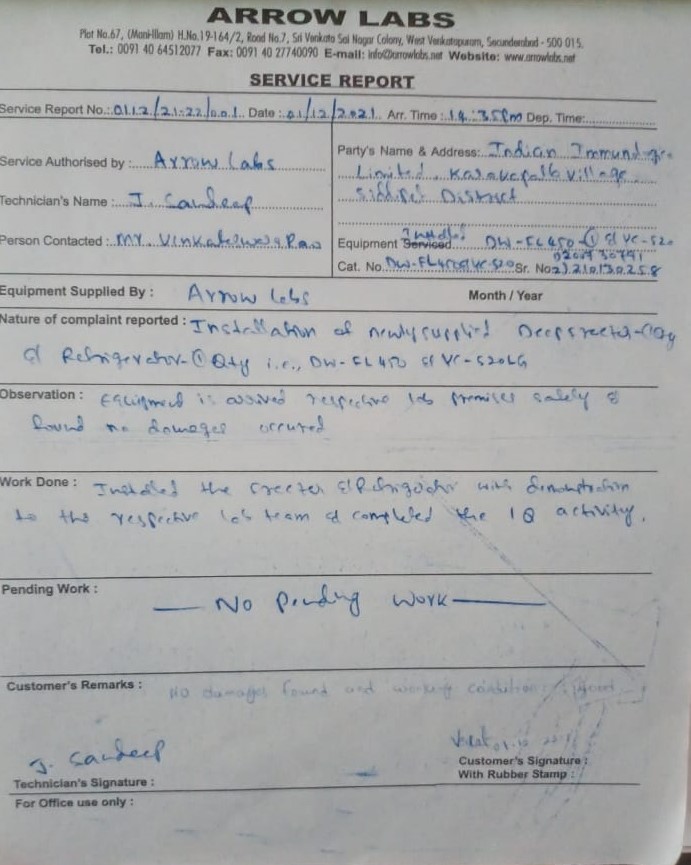 ARROW LABS
Plot No.67, (Mani-Illam) H.No.19-164/2, Road No.7, Sri Venkata Sai Nagar Colony, West Venkatapuram, Secunderabad - 500 015.
Tel.: 0091 40 64512077 Fax: 0091 40 27740090 E-mail: info@arrowlabs.net Website: www.arrowlabs.net
SERVICE REPORT
Service Report No.: 0112/21-22/001 Date: 01/12/2021 Arr. Time: 14:35pm Dep. Time:
Service Authorised by : Arrow Labs
Technician's Name : J. Sandeep
Person Contacted : Mr. Venkateswara Rao
Party's Name & Address: Indian
Limited, village
District
Installed
Equipment Serviced DW-FL450-① & VC-520
Cat. No. Sr. No.
Equipment Supplied By : Arrow Labs Month / Year
Nature of complaint reported : Installation of newly supplied
& Refrigerator-① Qty i.e., DW-FL450 &
Observation : Equipment is arrived respective lab premises safely &
found no damages occured
Work Done : Installed the & Refrigerator with demonstration
to the respective lab team & completed the IQ activity.
Pending Work :
No Pending Work
Customer's Remarks : No damages found and working condition
J. Sandeep
Technician's Signature :
Customer's Signature :
With Rubber Stamp :
For Office use only :